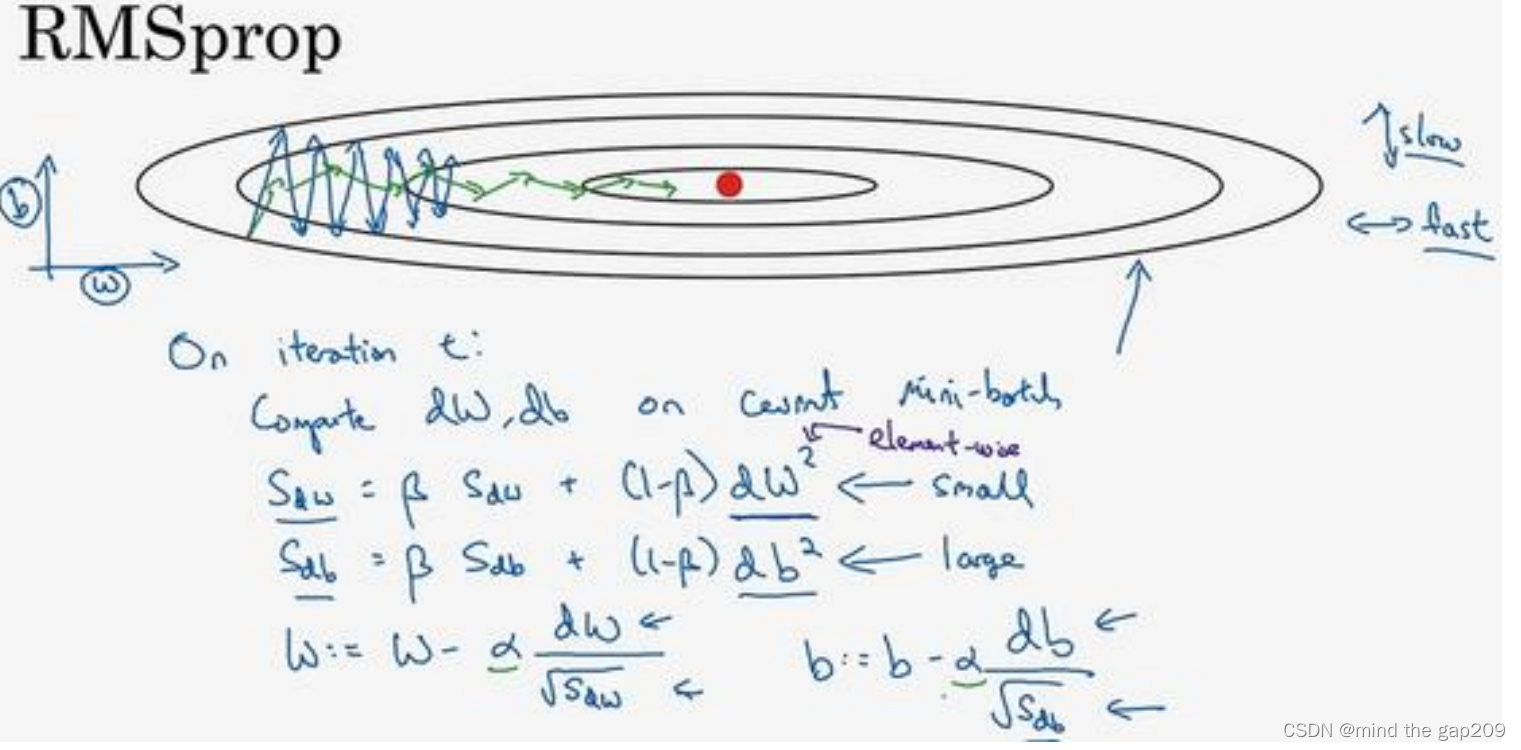 RMSprop
slow
b
fast
w
On iteration t:
Compute dW, db on current mini-batch
element-wise
S_dw = β S_dw + (1-β) dW² ← small
S_db = β S_db + (1-β) db² ← large
W := W - α dW/√S_dw ← b := b - α db/√S_db ←
CSDN @mind the gap209